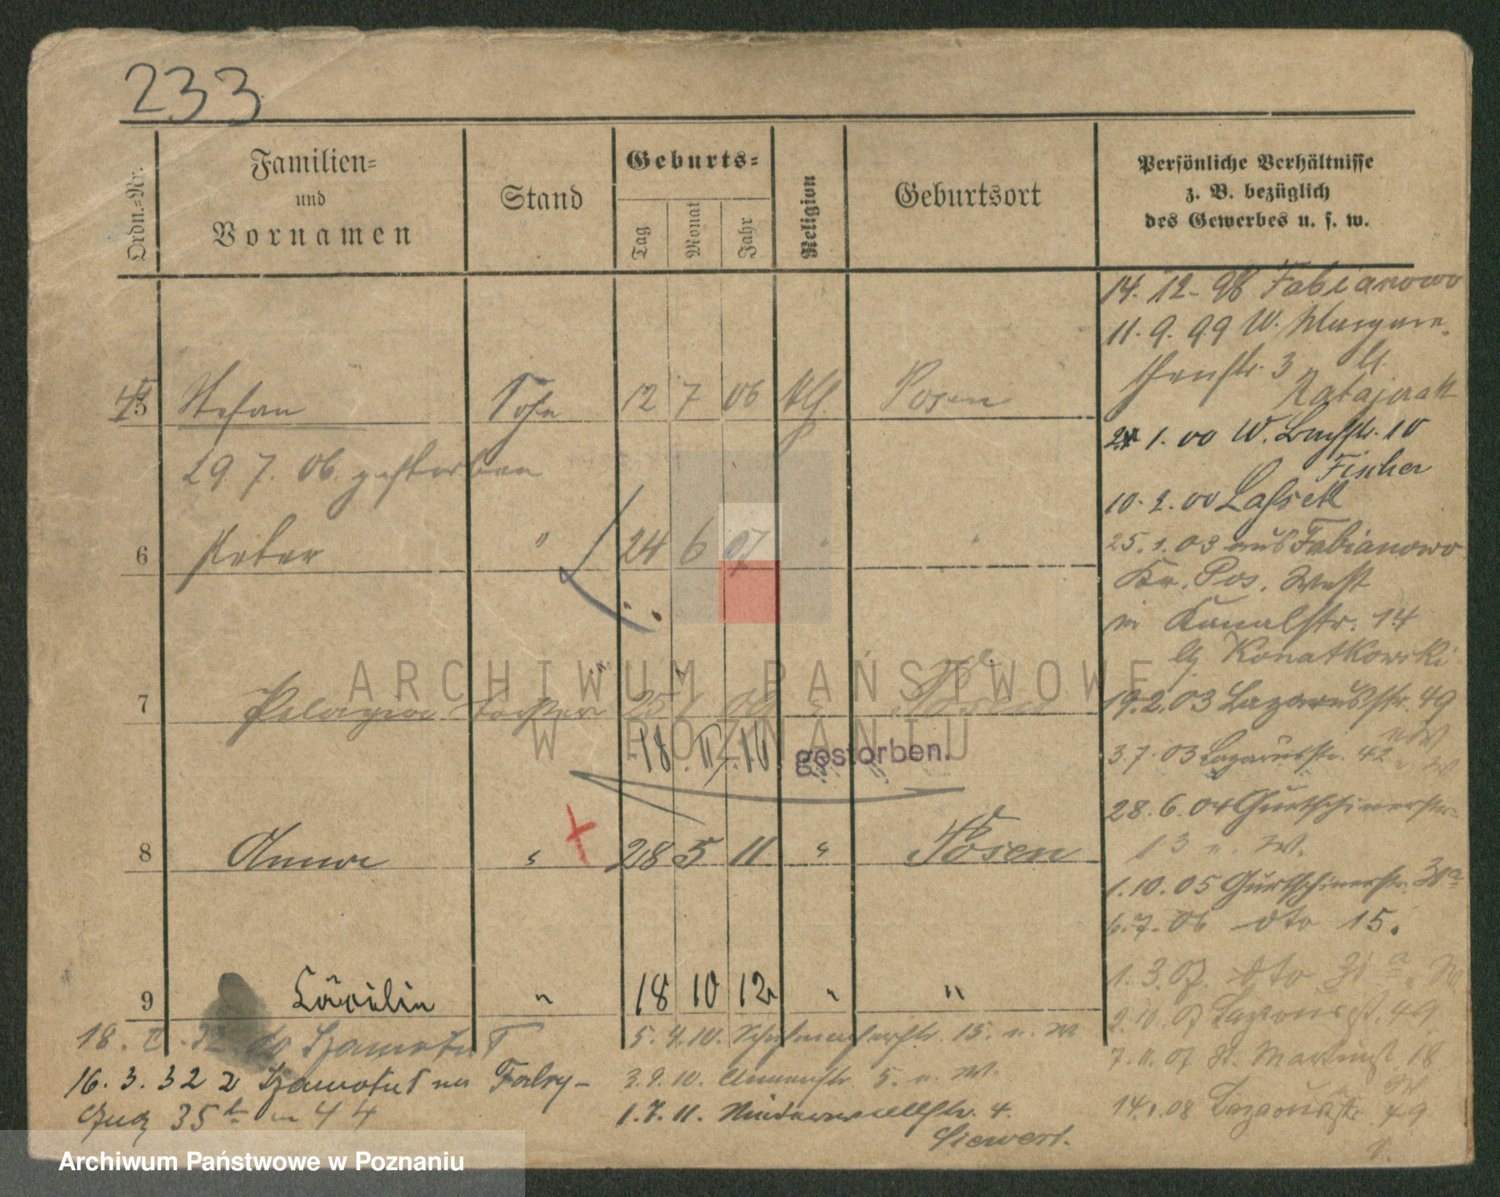 233
Ordn.-Nr.
Familien-
und
Vornamen
Stand
Geburts-
Tag
Monat
Jahr
Religion
Geburtsort
Persönliche Verhältnisse
z. B. bezüglich
des Gewerbes u. s. w.
5 Stefan Sohn 12 7 06 Posen
29 7. 06. gestorben
6 Peter " 24 6 07 " "
7 Pelagia Tochter Posen
18. II. 16 gestorben.
8 Anna " 28 5 11 " Posen
9 Cäcilie " 18 10 12 " "
14. 12. 98 Fabianowo
11. 9. 99 W. Margare-
thenstr. 3
Ratajczak
1. 00 W. 10
Fischer
10. 2. 00 Lassek
25. 1. 03 aus Fabianowo
Kr. Pos. West
in Kanalstr. 14
Konatkowski
19. 2. 03 Lazarusstr. 49
3. 7. 03 Lazarusstr. 42
28. 6. 04 Gurtschinerstr.
13 u. W.
1. 10. 05 Gurtschinerstr.
6. 7. 06 dto 15.
1. 3. 07. dto
2. 10. 07 Lazarusst. 49
7. 11. 07 St. Martinst. 18
14. 1. 08 Lazarusstr. 49
18. do Szamotuł
16. 3. 32 z Szamotuł na
35
5. 4. 10. Schuhmacherstr. 15. u. W
3. 9. 10. 5. u. W.
1. 7. 11. Niederwallstr. 4.
Siewert.
ARCHIWUM PAŃSTWOWE
W POZNANIU
Archiwum Państwowe w Poznaniu